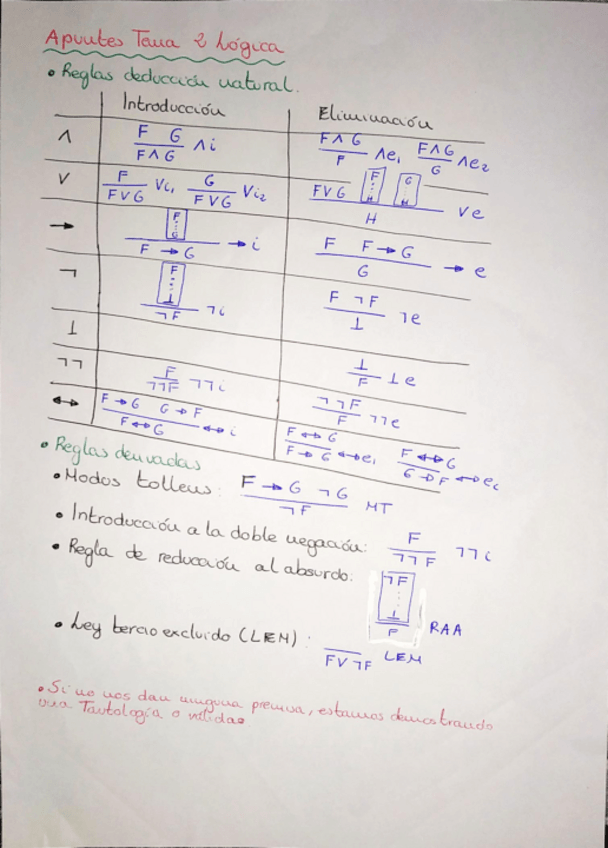 Apuntes Tema 2 Lógica
• Reglas deducción natural.
Introducción Eliminación
∧ F G / F∧G ∧i F∧G / F ∧e₁ F∧G / G ∧e₂
∨ F / F∨G ∨i₁ G / F∨G ∨i₂ F∨G [F ⋮ H] [G ⋮ H] / H ∨e
→ [F ⋮ G] / F → G →i F F→G / G →e
¬ [F ⋮ ⊥] / ¬F ¬i F ¬F / ⊥ ¬e
⊥ ⊥ / F ⊥e
¬¬ F / ¬¬F ¬¬i ¬¬F / F ¬¬e
↔ F→G G→F / F↔G ↔i F↔G / F→G ↔e₁ F↔G / G→F ↔e₂
• Reglas derivadas
• Modos tollens: F → G ¬G / ¬F MT
• Introducción a la doble negación: F / ¬¬F ¬¬i
• Regla de reducción al absurdo: [¬F ⋮ ⊥] / F RAA
• Ley tercio excluido (LEM): / F∨¬F LEM
• Si no nos dan ninguna premisa, estamos demostrando
una Tautología o válidas